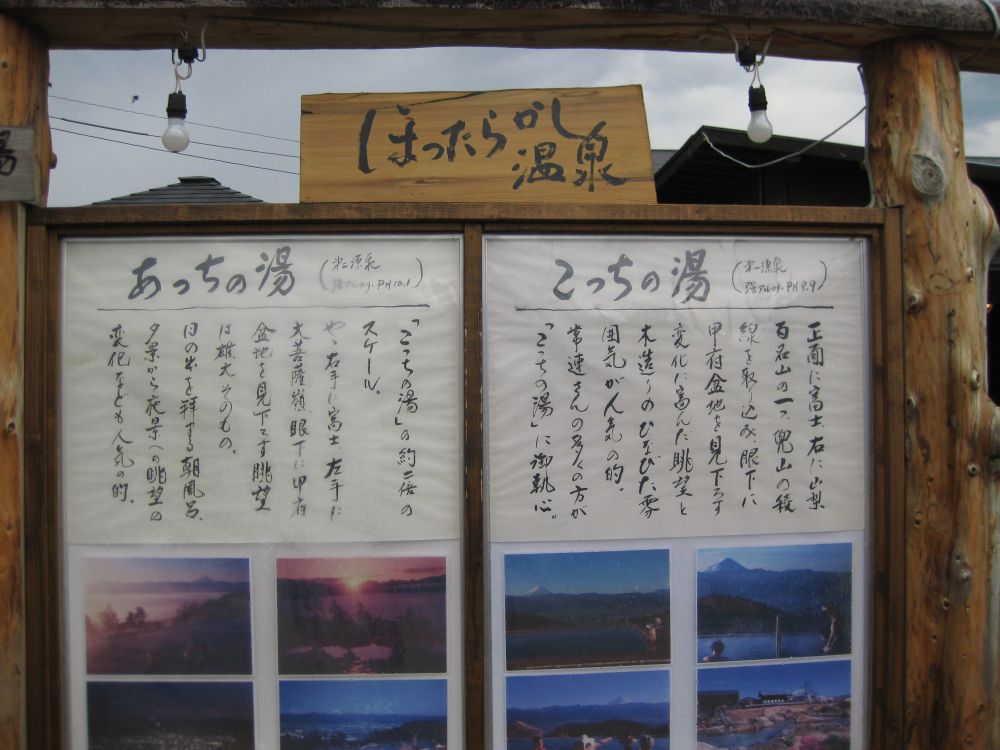 ほったらかし
温泉
こっちの湯
(第二源泉
強アルカリ・PH9.9)
正面に富士、右に山梨
百名山の一つ、兜山の稜
線を取り込み、眼下に
甲府盆地を見下ろす
変化に富んだ眺望と
木造りのひなびた雰
囲気が人気の的。
常連さんの多くの方が
「こっちの湯」に御執心。
あっちの湯
(第二源泉
強アルカリ・PH10.1)
「こっちの湯」の約二倍の
スケール。
やゝ右手に富士、左手に
大菩薩嶺、眼下に甲府
盆地を見下ろす眺望
は雄大そのもの。
日の出を拝する朝風呂、
夕景から夜景への眺望の
変化なども人気の的。
湯